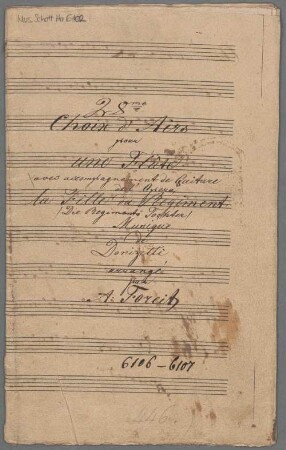 Mus. Schott Ha
28me
Choix d'Airs
pour
une Flûte
avec accompagnement de Guitare
de l'Opera
la Fille du Régiment
(Die Regiments Tochter)
Musique
de
Donizetti
arrangés
par
A. Foreit
6106-6107
446